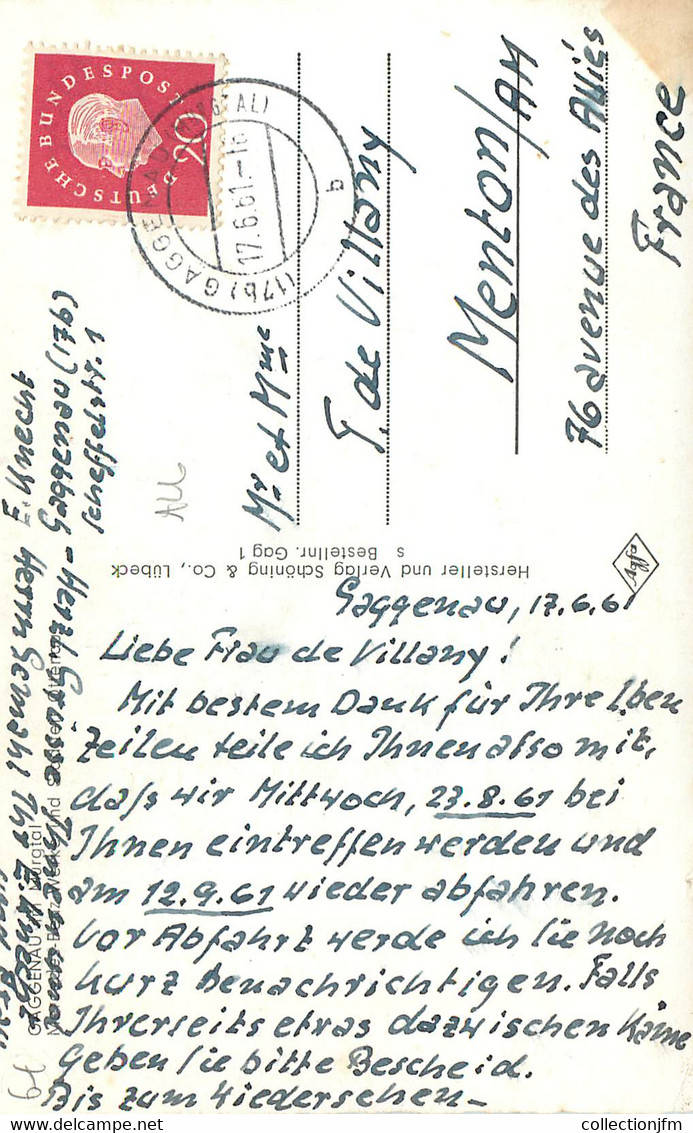 DEUTSCHE BUNDESPOST 20
(17b) GAGGENAU (MURGTAL)
17.6.61-18
b
Mr et Mme
T. de Villany
Menton/AM
76 avenue des Alliés
France
E. Knecht
Gaggenau (17b)
Scheffelstr. 1
All
Hersteller und Verlag Schöning & Co., Lübeck
s Bestellnr. Gag 1
Agfa
Gaggenau, 17.6.61
Liebe Frau de Villany!
Mit bestem Dank für Ihre lben
Zeilen teile ich Ihnen also mit,
daß wir Mittwoch, 23.8.61 bei
Ihnen eintreffen werden und
am 12.9.61 wieder abfahren.
Vor Abfahrt werde ich Sie noch
kurz benachrichtigen. Falls
Ihrerseits etwas dazwischen käme
geben Sie bitte Bescheid.
Bis zum Wiedersehen –
Herzl. Grüsse Ihnen u.
Herrn Gemahl Ihr E. Knecht
GAGGENAU im Murgtal
61
collectionjfm